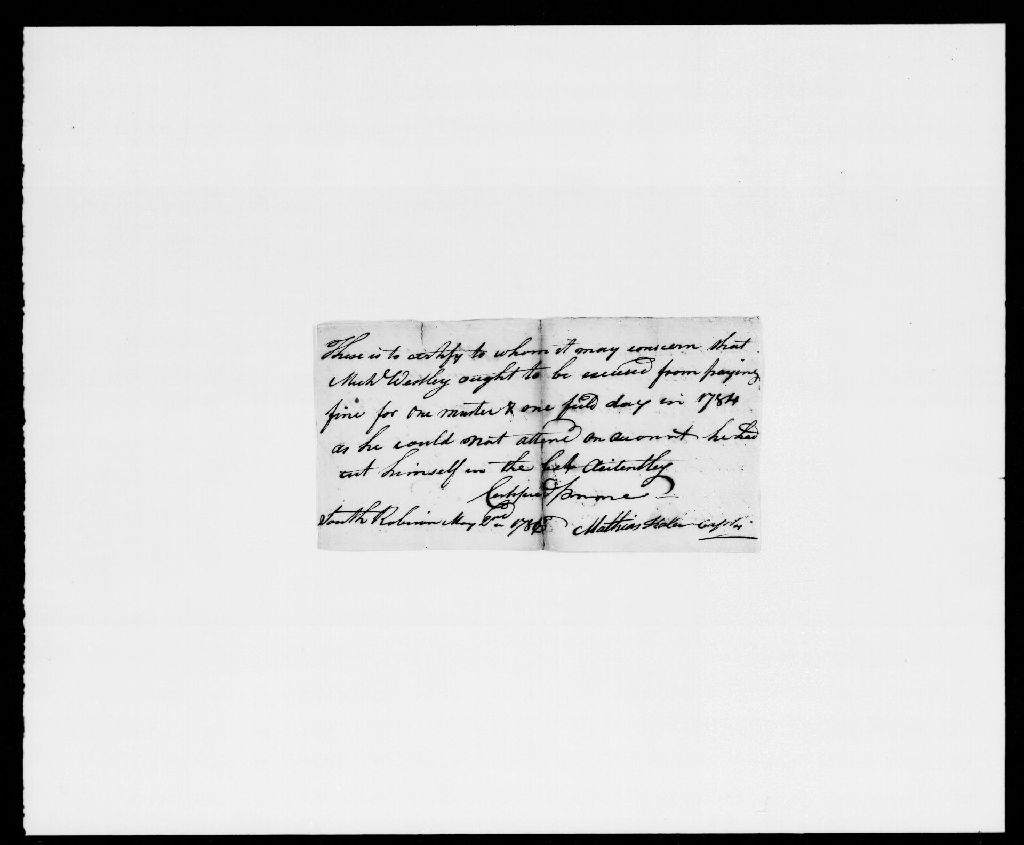 These is to certify to whom it may conscern that
Michl Westley ought to be excused from paying
fine for one muster & one field day in 1784
as he could not attend on account he had
cut himself in the Acitently
Certified me
South May 2nd 1786 Mathias